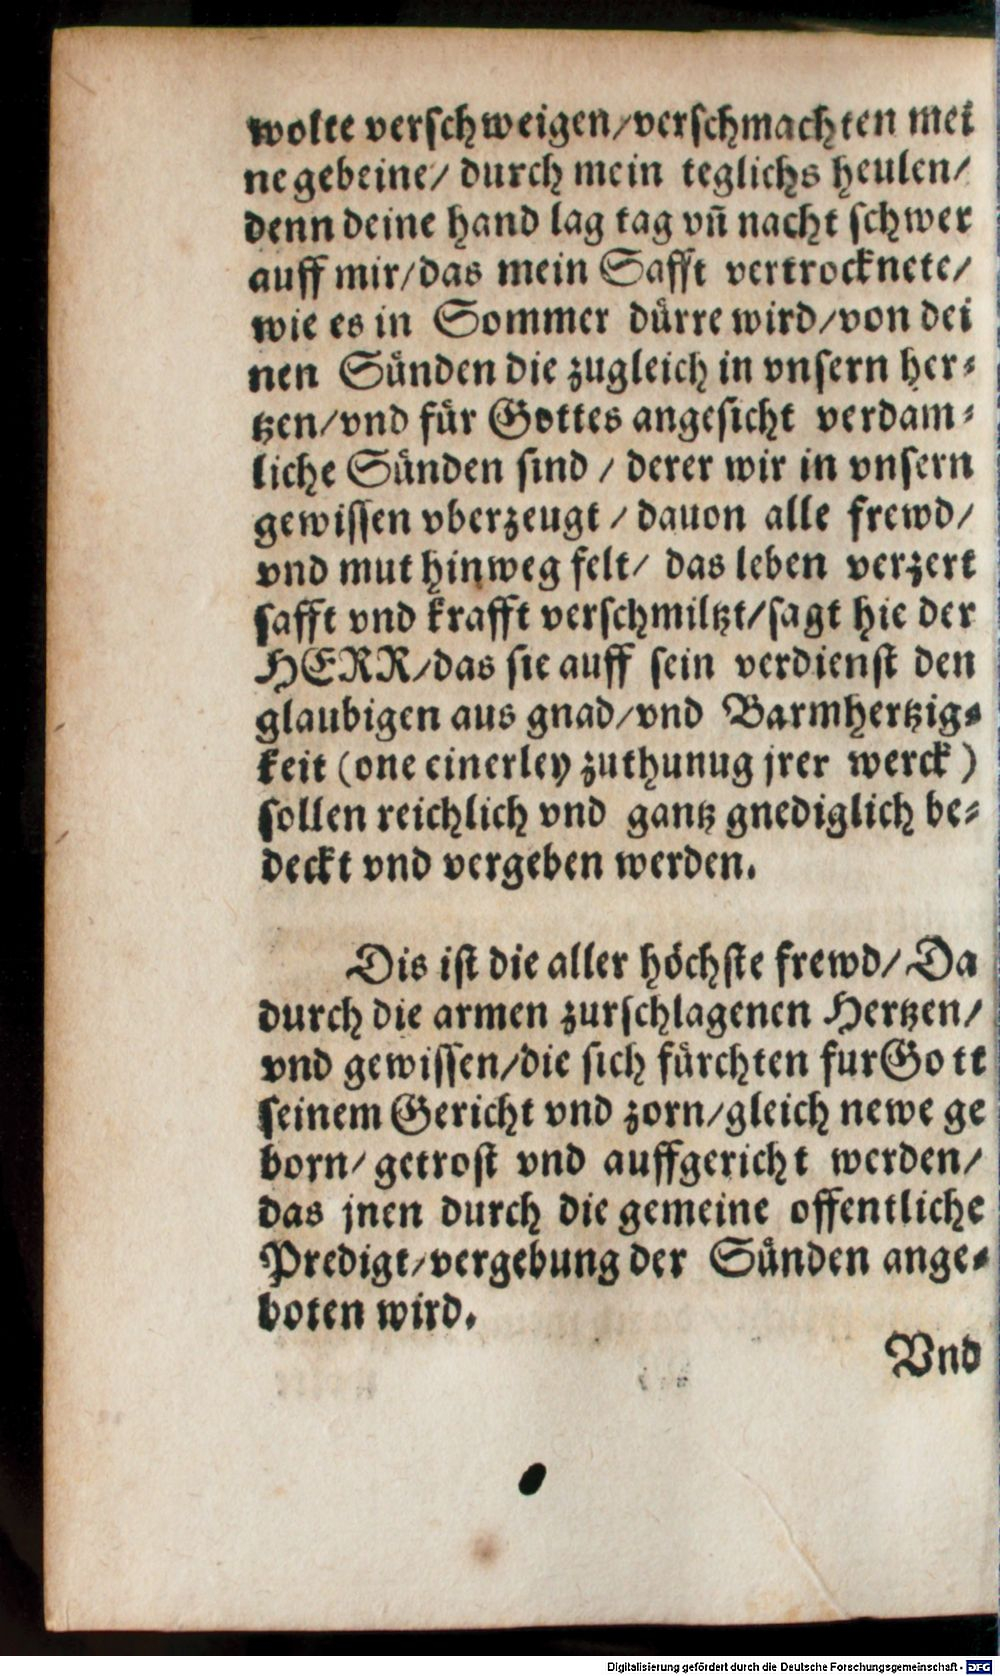 wolte verschweigen/verschmachten mei
ne gebeine/ durch mein teglichs heulen/
denn deine hand lag tag vñ nacht schwer
auff mir/das mein Safft vertrocknete/
wie es in Sommer dürre wird/von dei
nen Sünden die zugleich in vnsern her⸗
tzen/vnd für Gottes angesicht verdam⸗
liche Sünden sind / derer wir in vnsern
gewissen vberzeugt / dauon alle frewd/
vnd mut hinweg felt/ das leben verzert
safft vnd krafft verschmiltzt/sagt hie der
HERR/das sie auff sein verdienst den
glaubigen aus gnad/vnd Barmhertzig⸗
keit (one einerley zuthunug jrer werck)
sollen reichlich vnd gantz gnediglich be⸗
deckt vnd vergeben werden.
Dis ist die aller höchste frewd/ Da
durch die armen zurschlagenen Hertzen/
vnd gewissen/die sich fürchten fur Gott
seinem Gericht vnd zorn/gleich newe ge
born/ getrost vnd auffgericht werden/
das jnen durch die gemeine offentliche
Predigt/vergebung der Sünden ange⸗
boten wird.
Vnd
Digitalisierung gefördert durch die Deutsche Forschungsgemeinschaft - DFG